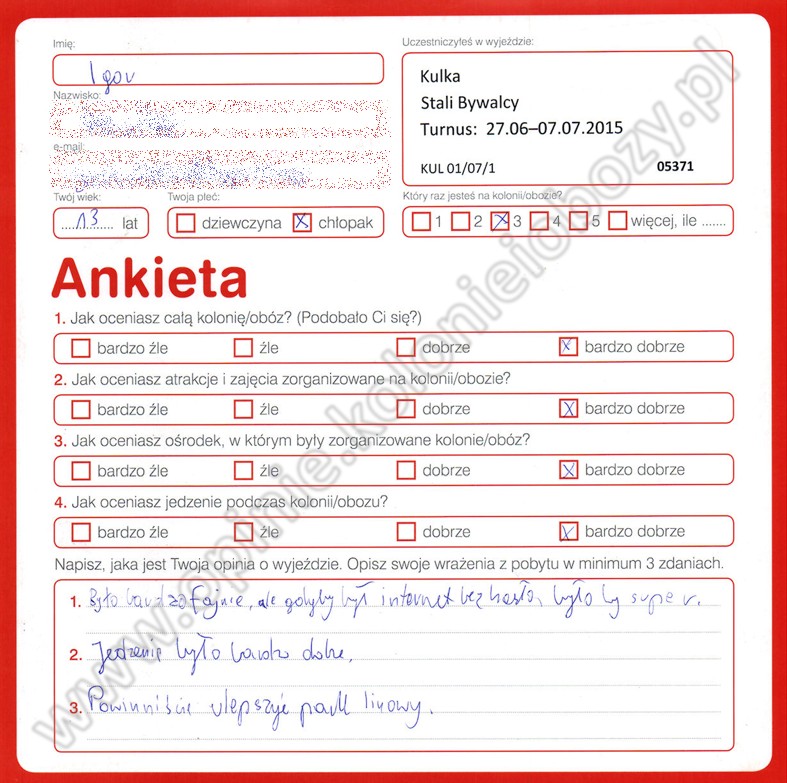 Imię:
Igor
Uczestniczyłeś w wyjeździe:
Kulka
Stali Bywalcy
Turnus: 27.06–07.07.2015
KUL 01/07/1 05371
Nazwisko:
e-mail:
Twój wiek: Twoja płeć: Który raz jesteś na kolonii/obozie?
13 lat dziewczyna x chłopak 1 2 x 3 4 5 więcej, ile .......
Ankieta
1. Jak oceniasz całą kolonię/obóz? (Podobało Ci się?)
bardzo źle źle dobrze x bardzo dobrze
2. Jak oceniasz atrakcje i zajęcia zorganizowane na kolonii/obozie?
bardzo źle źle dobrze x bardzo dobrze
3. Jak oceniasz ośrodek, w którym były zorganizowane kolonie/obóz?
bardzo źle źle dobrze x bardzo dobrze
4. Jak oceniasz jedzenie podczas kolonii/obozu?
bardzo źle źle dobrze x bardzo dobrze
Napisz, jaka jest Twoja opinia o wyjeździe. Opisz swoje wrażenia z pobytu w minimum 3 zdaniach.
1. Było bardzo fajnie, ale gdyby był internet bez hasła, było by super.
2. Jedzenie było bardzo dobre.
3. Powinniście ulepszyć park linowy.
www.opinie.kolonieiobozy.pl